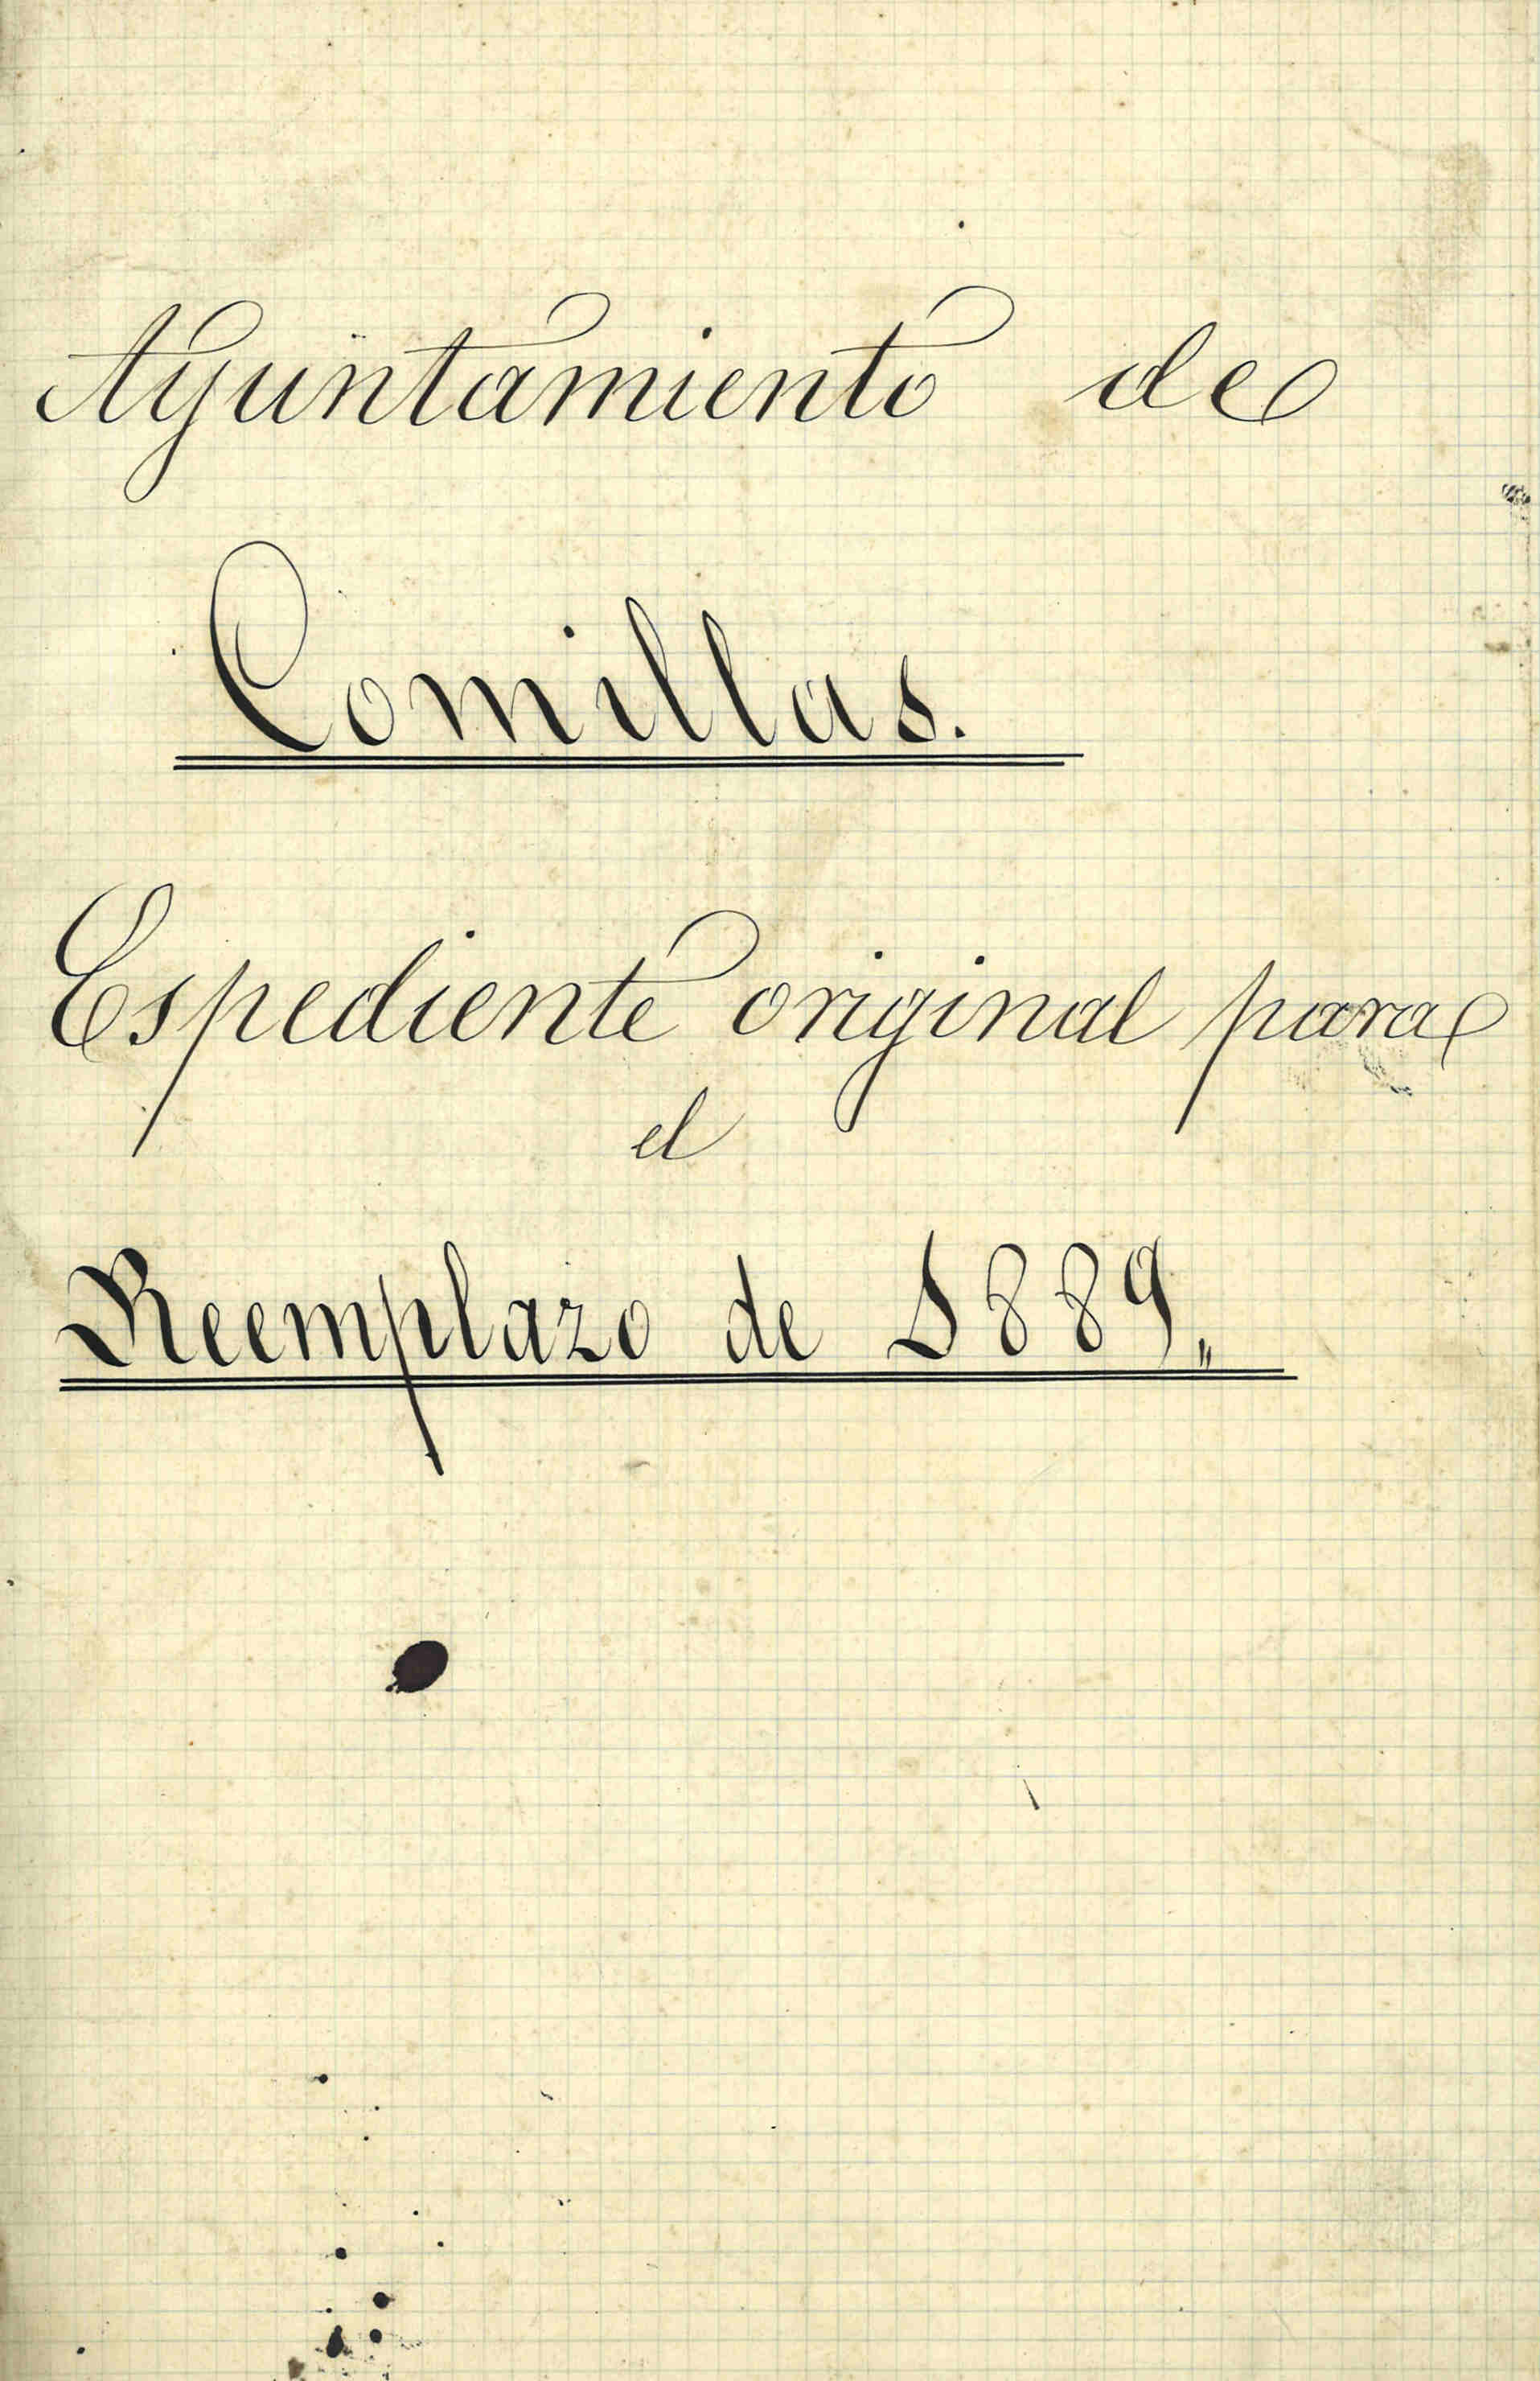 Ayuntamiento de
Comillas.
Espediente original para
el
Reemplazo de 1889„